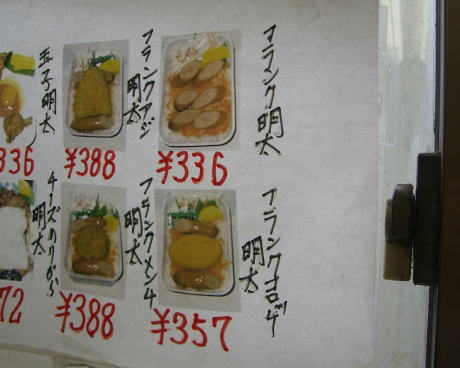 フランク明太
¥336
フランクアジ
明太
¥388
玉子明太
336
フランクコロッケ
明太
¥357
フランクメンチ
明太
¥388
チーズのりから
明太
72